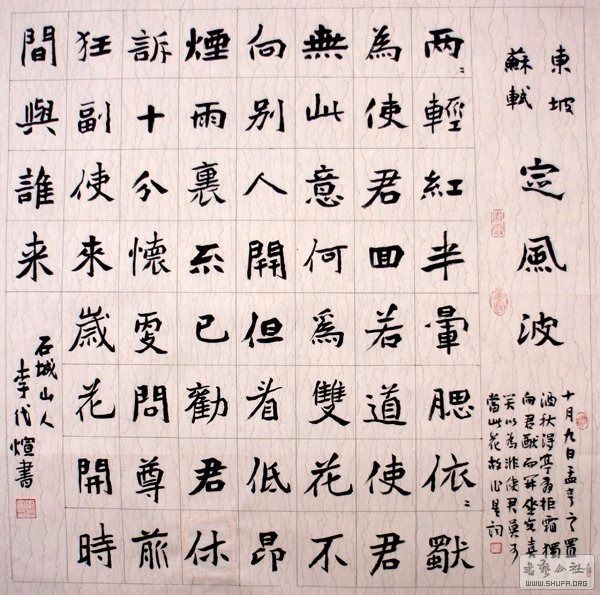 東坡
蘇軾
定風波
十月九日孟亨之置
酒秋得亭有拒霜獨
向君猷而開坐客喜
笑以為非使君莫可
當此花故作是詞
两々輕紅半暈腮依々獸
為使君囬若道使君
無此意何爲雙花不
向别人開但看低昂
煙雨裏不已勸君休
訴十分懷更問尊前
狂副使來歲花開時
間與誰来
石城山人
李代煊書
書藝公社
WWW.SHUFA.ORG